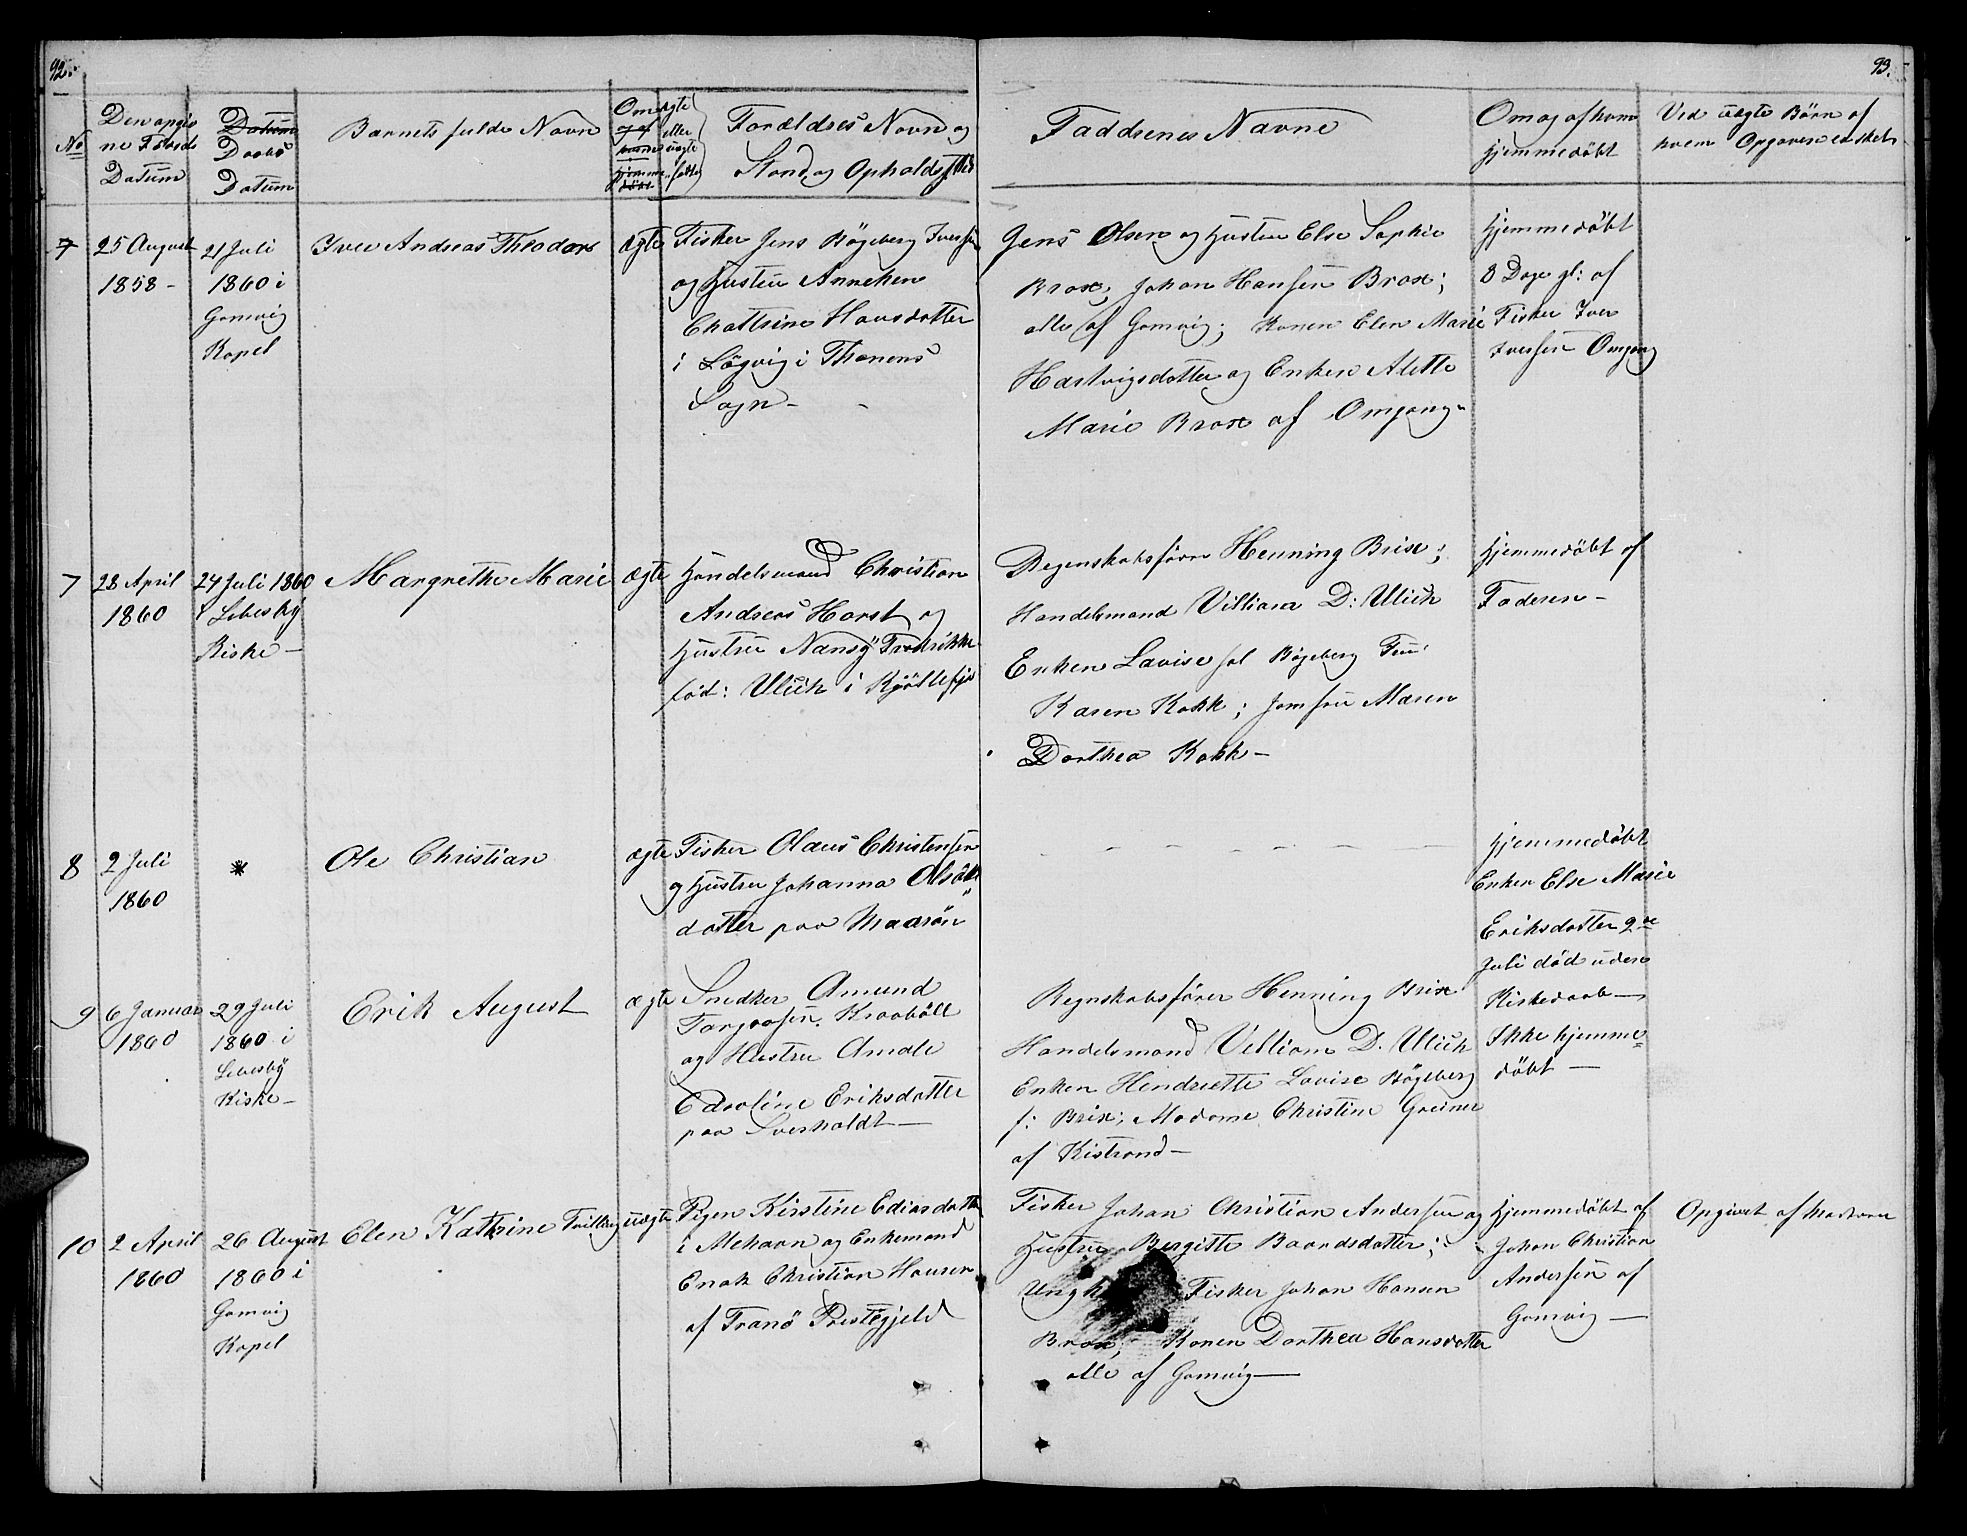 92.
93.
No
Den angivne Fødsels Datum
Datum
Daabs
Datum
Barnets fulde Navn
Om ægte eller uægte født
Forældres Navn og
Stand og Opholdssted
Faddernes Navne
Om og af hvem
hjemmedöbt
Ved uægte Börn af
hvem Opgaven er skeet
7
25 August
1858 -
21 Juli
1860 i
Gamvig
Kapel
Iver Andreas Theodor
ægte
Fisker Jens Bögeberg Iversen
og Hustru Anneken
Chattrine Hansdatter
i Lögvig i Thanens
Sogn -
Jens Olsen og Hustru Else Sophie
Brox; Johan Hansen Brox;
alle af Gamvig; Konen Elen Marie
Hartvigsdatter og Enken Alette
Marie Brox af Omgang -
Hjemmedöbt
8 Dage gl: af
Fisker Iver
Iversen Omgang
7
28 April
1860
24 Juli 1860
i Lebesby
Kirke -
Margrethe Marie
ægte
Handelsmand Christian
Andreas Horst og
Hustru Nansy Fredrikke
föd: Ulich i Kjöllefjor
Regenskabsförer Henning Brix;
Handelsmand Villiam D: Ulich
Enken Lavise föd Bögeberg
Karen Kokk; Jomfru Maren
Dorthea Kokk -
Hjemmedöbt af
Faderen -
8
2 Juli
1860
*
Ole Christian
ægte
Fisker Olaus Christensen
og Hustru Johanna
datter paa Maarön
- - - - - -
Hjemmedöbt
Enken Else Marie
Eriksdatter 9de
Juli död uden
Kirkedaab -
9
6 Januar
1860
29 Juli
1860 i
Lebesby
Kirke -
Erik August
ægte
Snedker Amund
Torgersen Kraaböll
og Hustru Amale
Edvoline Eriksdatter
paa Sverholdt -
Regnskabsförer Henning Brix
Handelsmand Villiam D. Ulich
Enken Hendriette Lovise Bögeberg
f: Brix; Madame Christine Greiner
af Kistrand -
Ikke hjemme=
döbt -
10
2 April
1860
26 August
1860 i
Gamvig
Kapel
Elen Kathrine Tvilling
uægte
Pigen Kirstine Ediasdatter
i Mehavn og Enkemand
Enok Christian Hansen
af Tranö Prestegjeld
Fisker Johan Christian Andersen og
Hustru Bergitte Baardsdatter;
Ungk Fisker Johan Hansen
Brox; Konen Dorthea Hansdatter
alle af Gamvig -
Hjemmedöbt af
Johan Christian
Andersen af
Gamvig -
Opgivet af Moderen